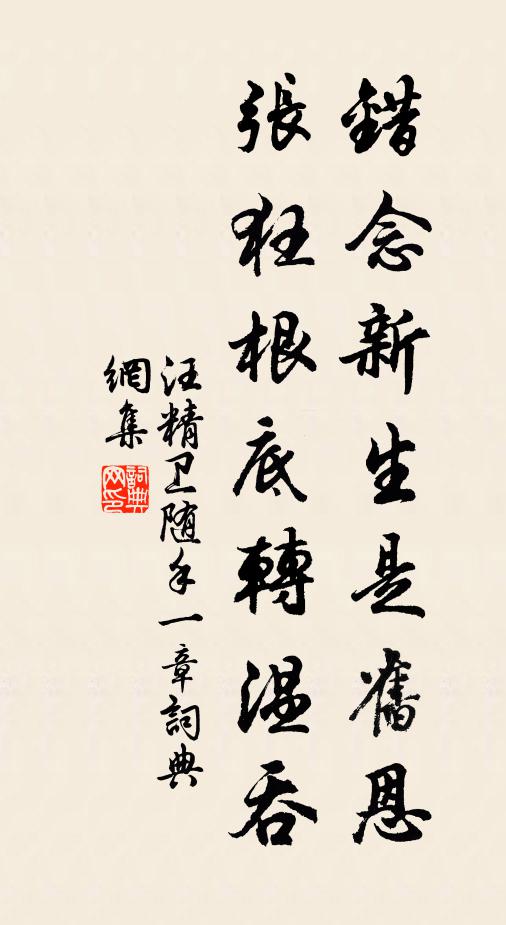 錯念新生是舊恩
張狂根底轉温吞
汪精卫随手一章詞典
網集
詞典網印